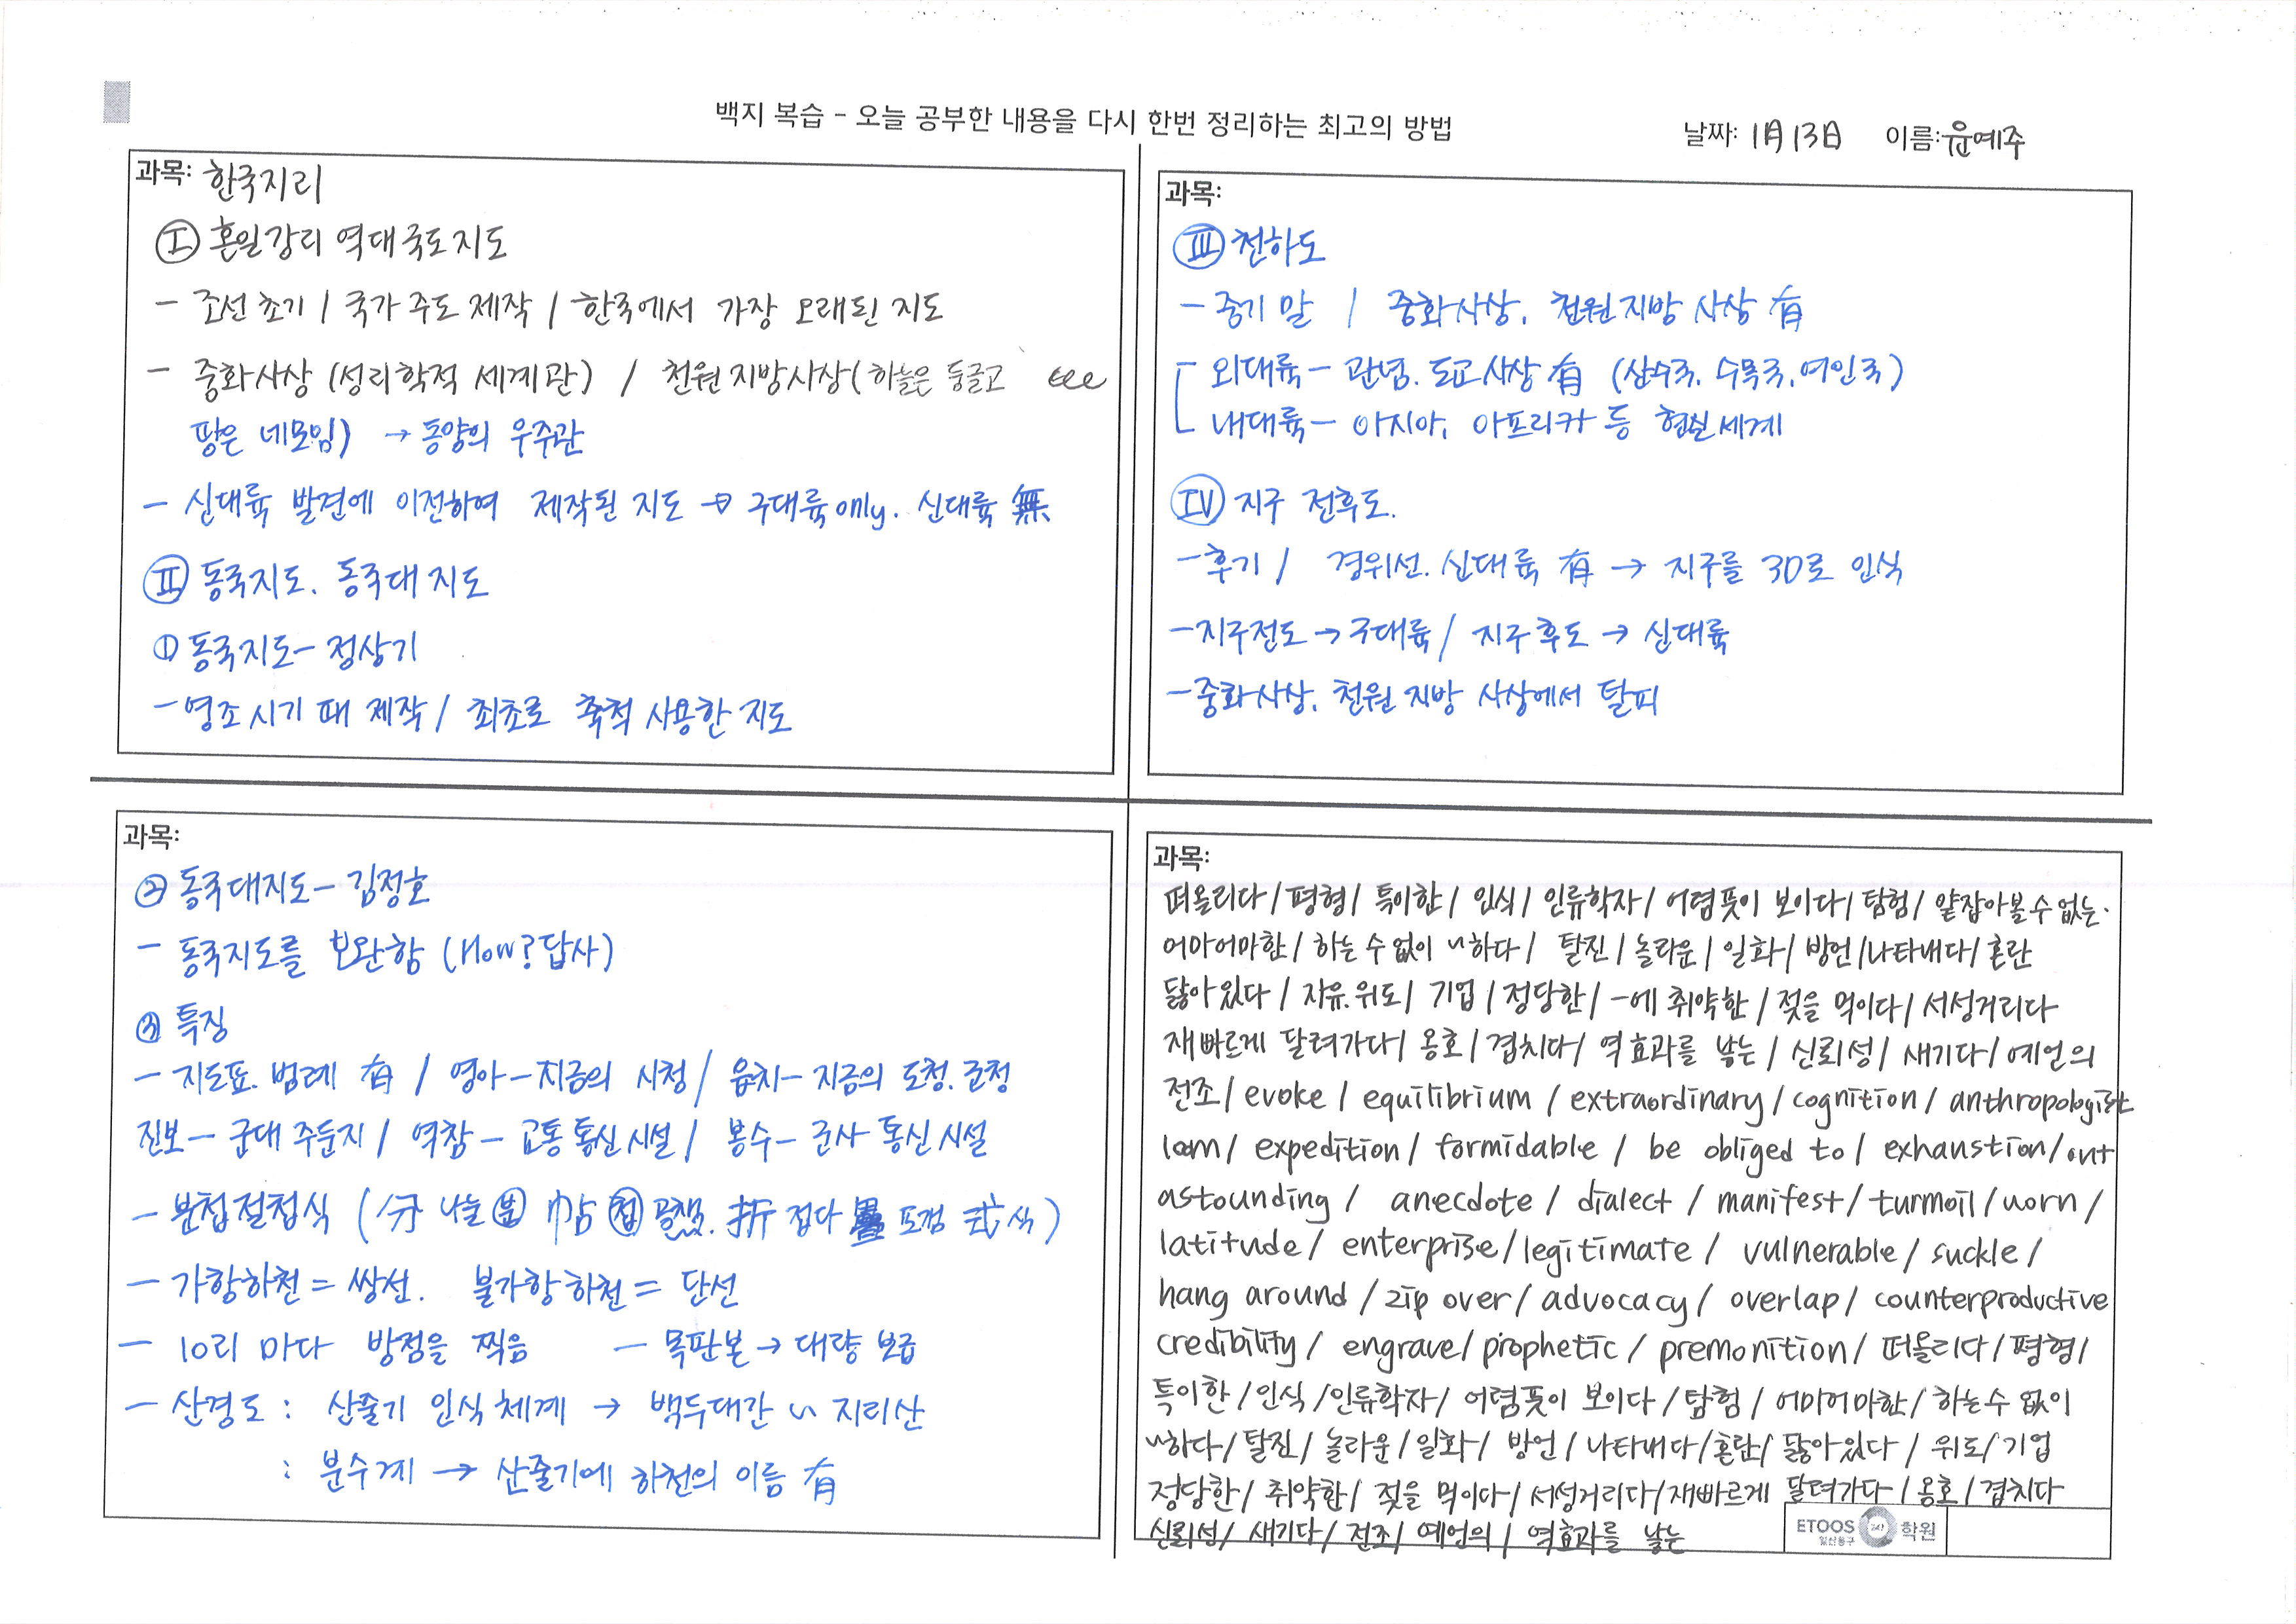 백지 복습 - 오늘 공부한 내용을 다시 한번 정리하는 최고의 방법
날짜: 1月 13日 이름: 윤예주
과목: 한국지리
Ⅰ 혼일강리 역대국도지도
- 조선 초기 / 국가 주도 제작 / 한국에서 가장 오래된 지도
- 중화사상 (성리학적 세계관) / 천원지방사상 (하늘은 둥글고
땅은 네모임) → 동양의 우주관
- 신대륙 발견에 이전하여 제작된 지도 → 구대륙 only. 신대륙 無
Ⅱ 동국지도. 동국대지도
① 동국지도 - 정상기
- 영조 시기 때 제작 / 최초로 축척 사용한 지도
과목:
Ⅲ 천하도
- 중기 말 / 중화사상. 천원지방 사상 有
외대륙 - 관념. 도교사상 有 (삼수국. 수목국. 여인국)
내대륙 - 아시아, 아프리카 등 현실세계
Ⅳ 지구 전후도.
- 후기 / 경위선. 신대륙 有 → 지구를 3D로 인식
- 지구전도 → 구대륙 / 지구후도 → 신대륙
- 중화사상. 천원지방 사상에서 탈피
과목:
② 동국대지도 - 김정호
- 동국지도를 보완함 (How? 답사)
③ 특징
- 지도표. 범례 有 / 영아 - 지금의 시청 / 읍치 - 지금의 도청. 군청
진보 - 군대 주둔지 / 역참 - 교통 통신 시설 / 봉수 - 군사 통신 시설
- 분첩절첩식 (分 나눌 분 帖 첩 折 접다 疊 포갤 式 식)
- 가항하천 = 쌍선. 불가항하천 = 단선
- 10리 마다 방점을 찍음 - 목판본 → 대량 보급
- 산경도 : 산줄기 인식 체계 → 백두대간 ~ 지리산
: 분수계 → 산줄기에 하천의 이름 有
과목:
떠올리다 / 평형 / 특이한 / 인식 / 인류학자 / 어렴풋이 보이다 / 탐험 / 얕잡아볼 수 없는.
어마어마한 / 하는 수 없이 ~하다 / 탈진 / 놀라운 / 일화 / 방언 / 나타내다 / 혼란
닳아있다 / 자유. 위도 / 기업 / 정당한 / -에 취약한 / 젖을 먹이다 / 서성거리다
재빠르게 달려가다 / 옹호 / 겹치다 / 역효과를 낳는 / 신뢰성 / 새기다 / 예언의
전조 / evoke / equilibrium / extraordinary / cognition / anthropologist
loom / expedition / formidable / be obliged to / exhaustion /
astounding / anecdote / dialect / manifest / turmoil / worn /
latitude / enterprise / legitimate / vulnerable / suckle /
hang around / zip over / advocacy / overlap / counterproductive
credibility / engrave / prophetic / premonition / 떠올리다 / 평형 /
특이한 / 인식 / 인류학자 / 어렴풋이 보이다 / 탐험 / 어마어마한 / 하는수 없이
~하다 / 탈진 / 놀라운 / 일화 / 방언 / 나타내다 / 혼란 / 닳아있다 / 위도 / 기업
정당한 / 취약한 / 젖을 먹이다 / 서성거리다 / 재빠르게 달려가다 / 옹호 / 겹치다
신뢰성 / 새기다 / 전조 / 예언의 / 역효과를 낳는
ETOOS 247 학원
일산동구